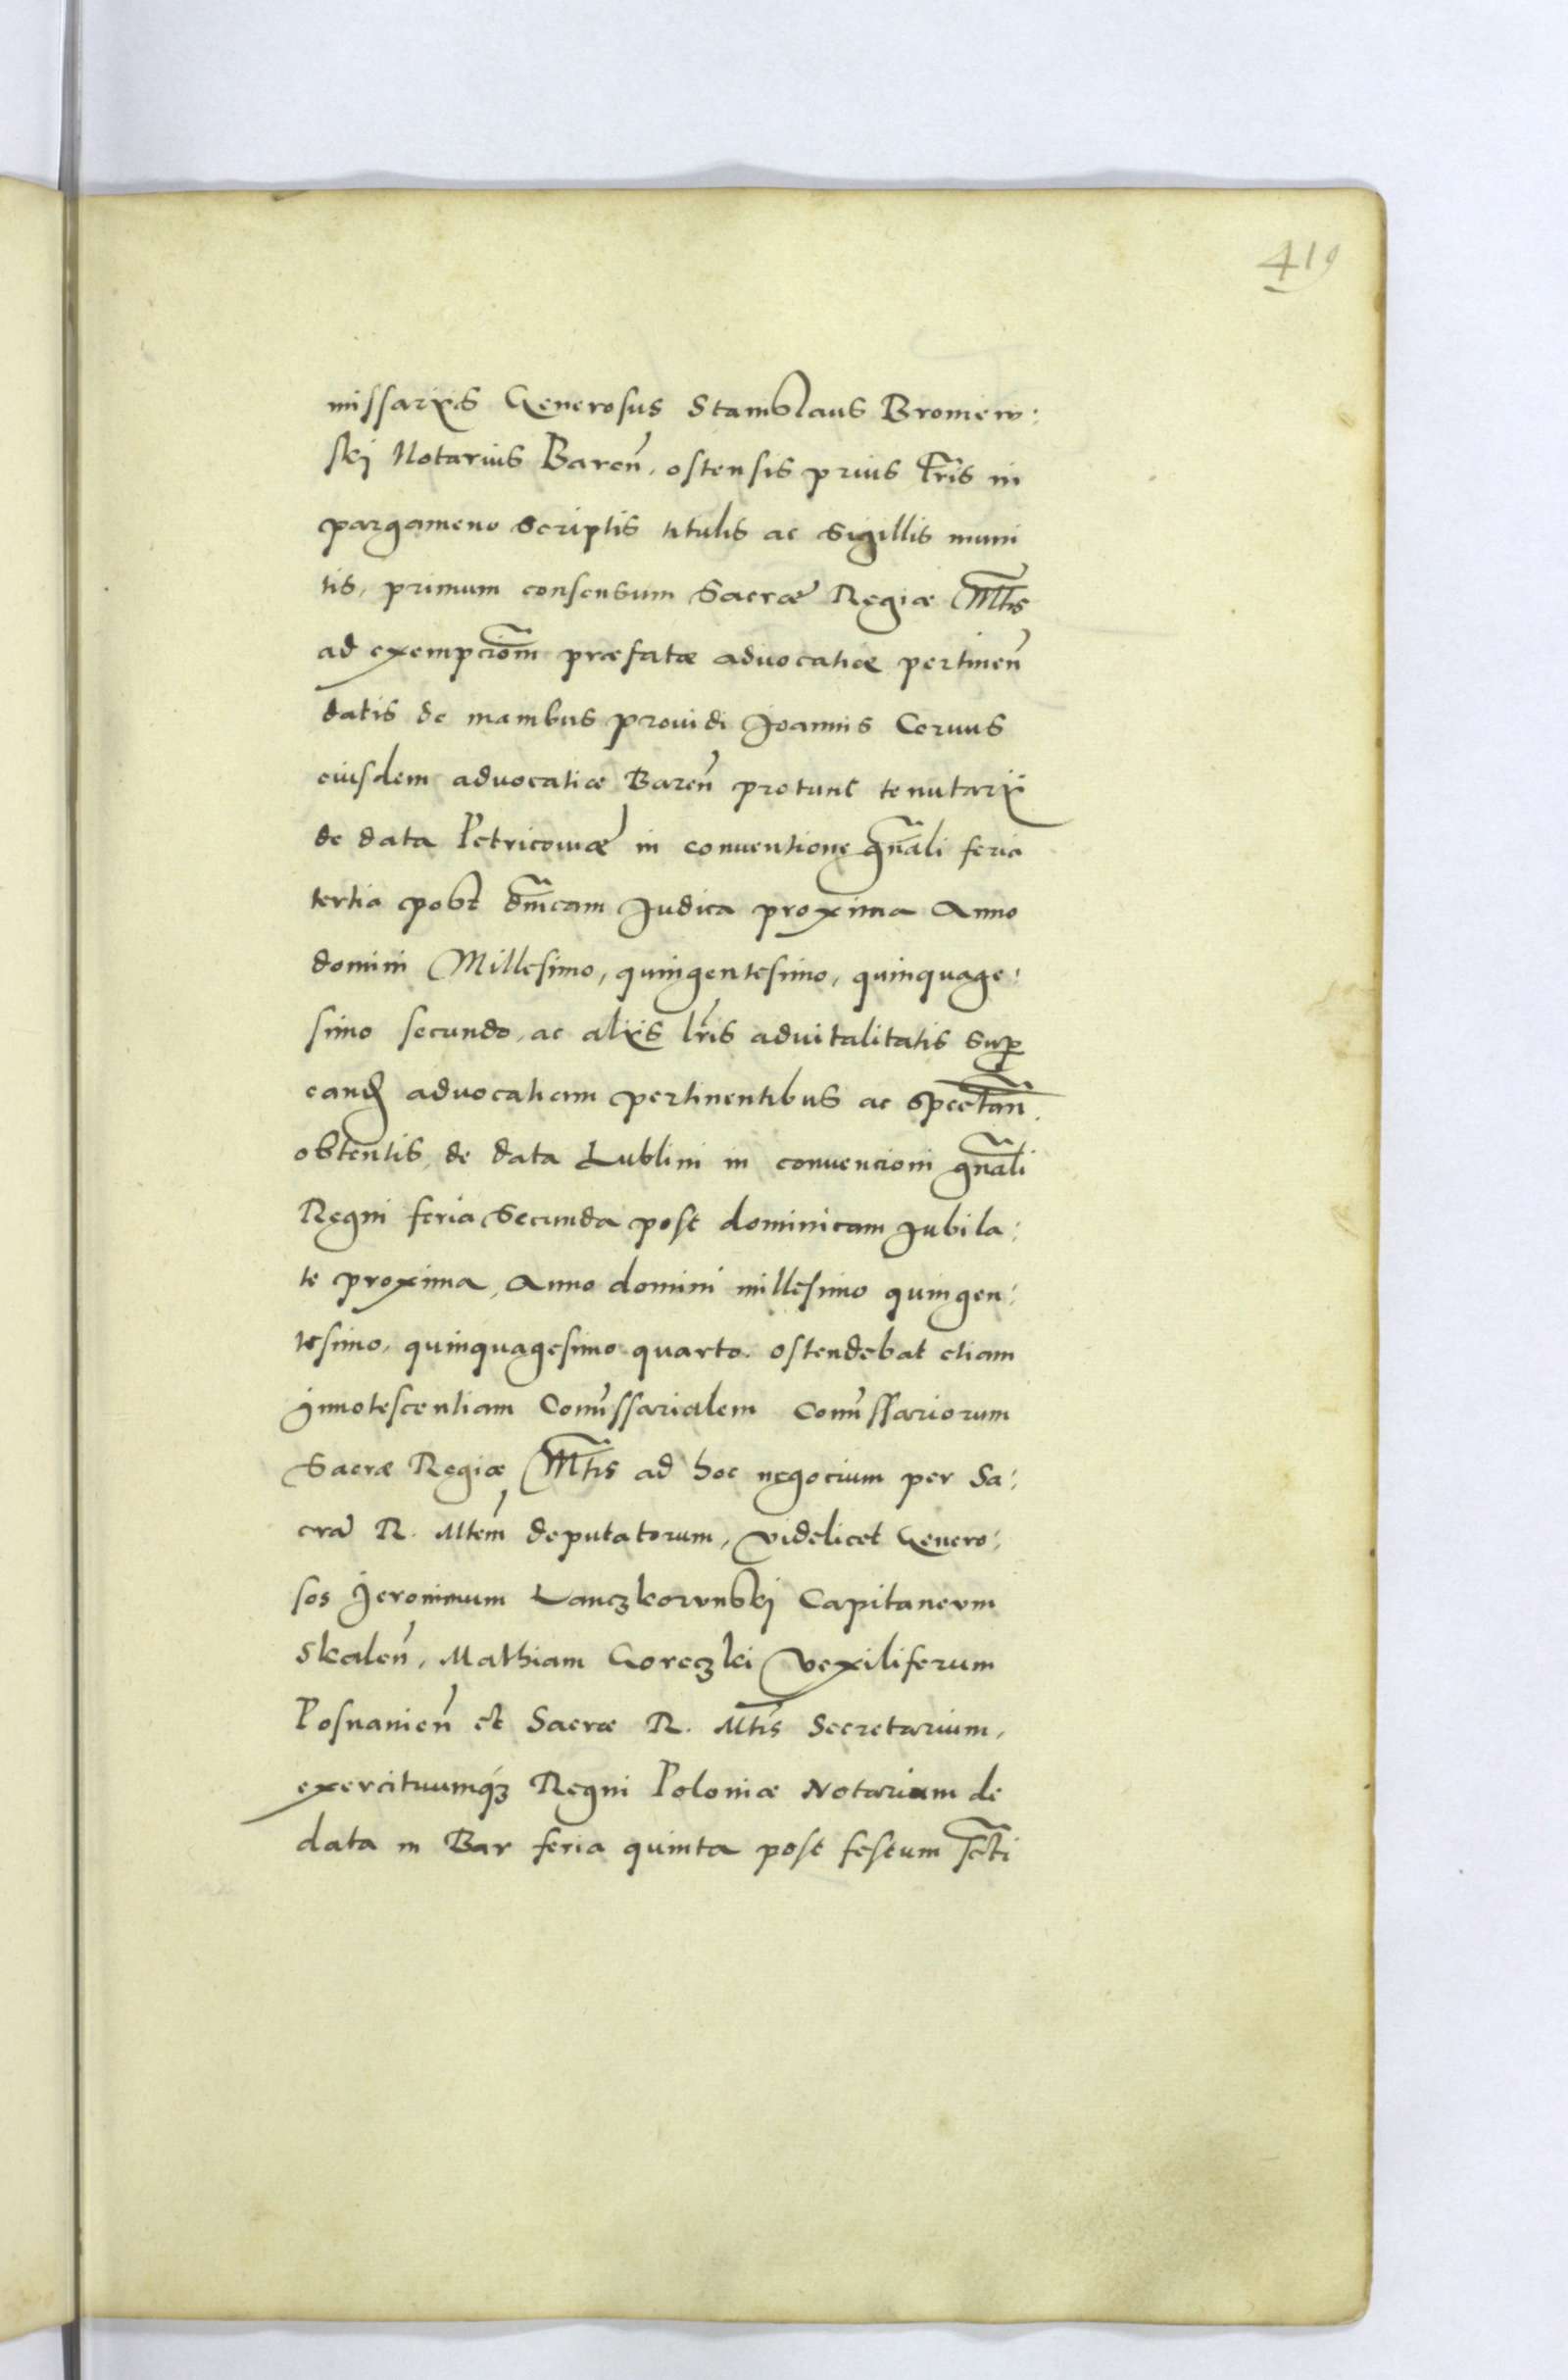 419
missarijs Generosus Stanislaus Bromiew:
skj Notarius Baren̄, ostensis prius lr̄is in
pargameno scriptis titulis ac sigillis muni
tis, primum consensum Sacræ Regiæ Mt̄is
ad exempciōm præfatæ advocatiæ pertinen̄
datis de manibus prouidi Joannis Coruus
eiusdem advocatiæ Baren̄ protunc tenutarij
de data Petricouiæ in conuentione gn̄ali feria
tertia post dn̄icam Judica proxima Anno
domini Millesimo, quingentesimo, quinquage:
simo secundo, ac alijs lr̄is aduitalitatis sup̱
eand̄ advocatiam pertinentibus ac spectan̄.
obtentis, de data Lublini in conuencioni gn̄ali
Regni feria Secunda post dominicam Jubila:
te proxima, Anno domini millesimo quingen:
tesimo, quinquagesimo quarto. ostendebat etiam
jnnotescentiam Com̄issarialem Com̄issariorum
Sacræ Regiæ Mt̄is ad hoc negocium per Sa:
crā R. Mtem̄ deputatorum, videlicet Genero:
sos Jeronimum Lanczkorunskj Capitaneum
Skalen̄, Mathiam Goreczki vexiliferum
Posnanien̄ et Sacræ R. Mt̄is Secretarium,
exercituumqʒ Regni Poloniæ Notarium de
data in Bar feria quinta post festum sc̄ti